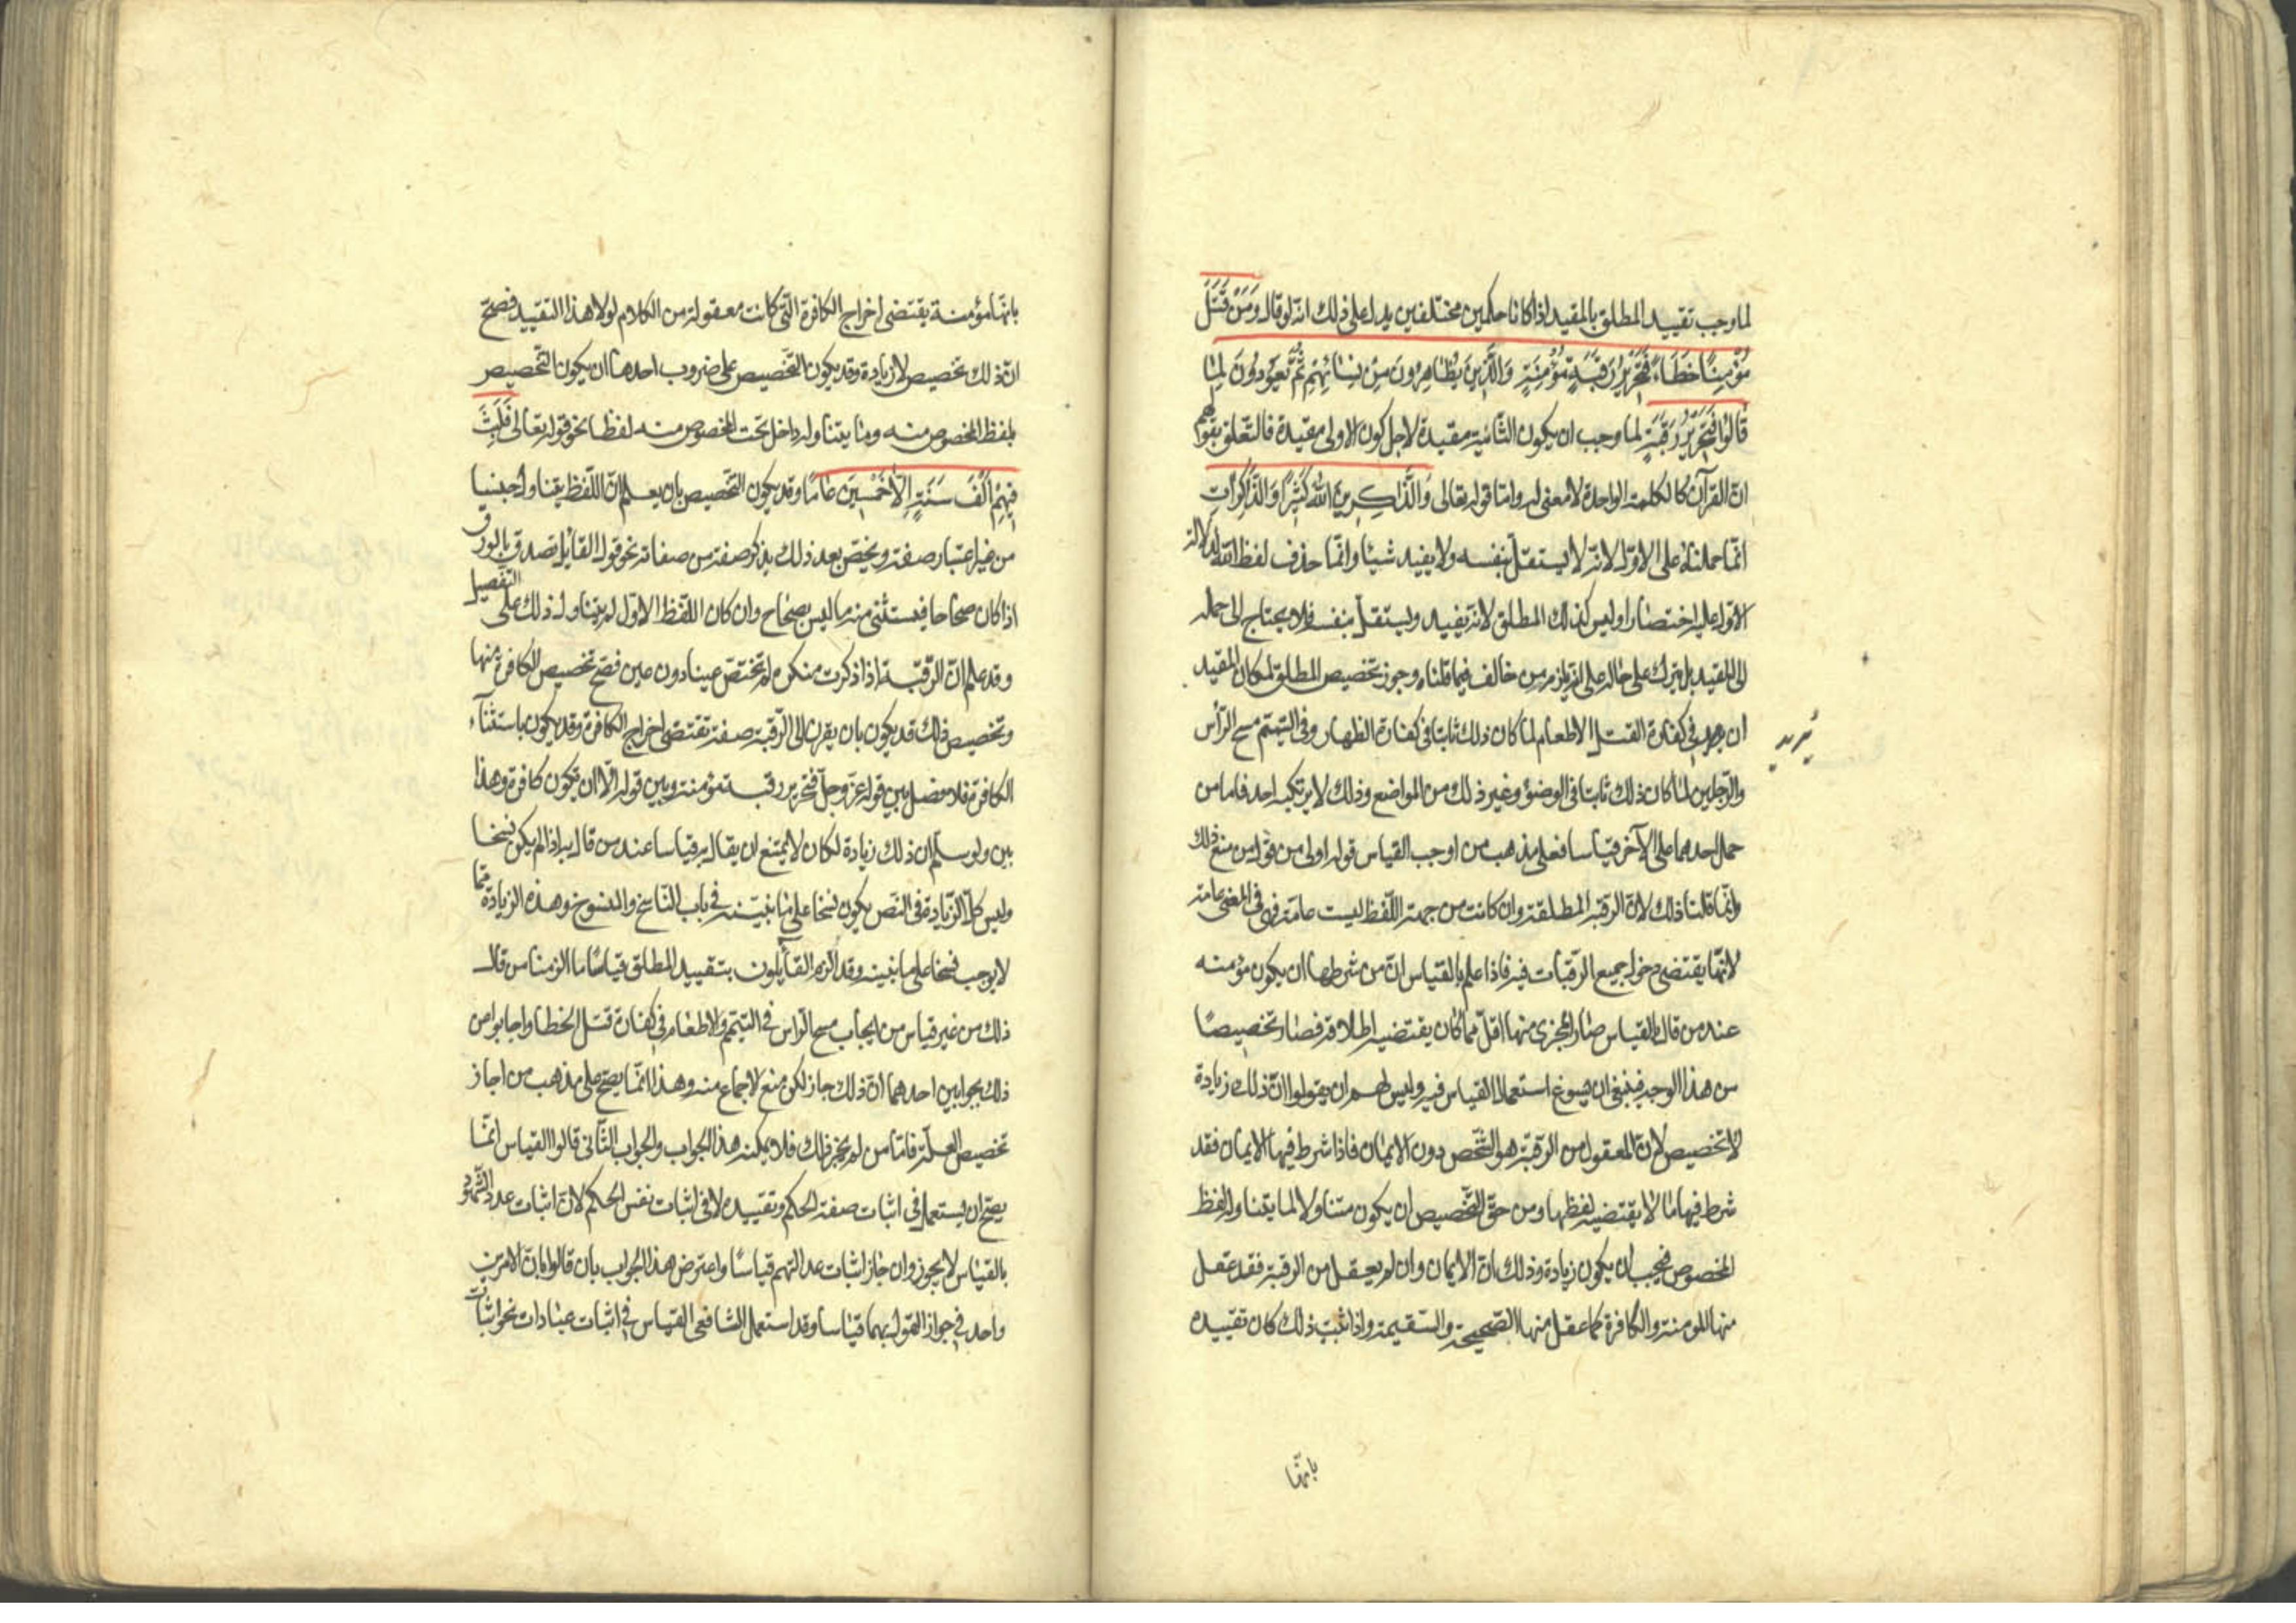 لما وجب تقييد المطلق بالمقيد اذا كانا حكمين مختلفين يدل على ذلك انه لو قال وَمَنْ قَتَلَ
مُؤْمِنًا خَطَاءً فَتَحْرِيرُ رَقَبَةٍ مُؤْمِنَةٍ وَالَّذِينَ يُظَاهِرُونَ مِنْ نِسَائِهِمْ ثُمَّ يَعُودُونَ لِمَا
قَالُوا فَتَحْرِيرُ رَقَبَةٍ لما وجب ان يكون الثانية مقيدة لاجل كون الاولى مقيدة فالتعلق بقولهم
انّ القرآن كالكلمة الواحدة لا معنى له وامّا قوله تعالى وَالذَّاكِرِينَ اللهَ كَثِيرًا وَالذَّاكِرَاتِ
انّما حملناه على الاوّل لانّه لا يستقلّ بنفسه ولا يفيد شيئا وانّما حذف لفظ الله لدلالة
الاوّل عليه اختصارا وليس كذلك المطلق لانّه يفيد ويستقلّ بنفسه فلا يحتاج الى حمله
الى المقيد بل يترك على حاله على انه يلزم من خالف فيما قلناه وجوز تخصيص المطلق لمكان المقيد
ان يزيد في كفارة القتل الاطعام لما كان ذلك ثابتا في كفارة الظهار وفي التيمم مسح الرأس
والرّجلين لما كان ذلك ثابتا في الوضوء وغير ذلك من المواضع وذلك لا يرتكبه احد فاما من
حمل احدهما على الآخر قياسا فعلى مذهب من اوجب القياس قوله اولى من قول من منع ذلك
وانّما قلنا ذلك لانّ الرقبة المطلقة وان كانت من جهة اللّفظ ليست عامّة فهي في المعنى عامة
لانّها يقتضي دخول جميع الرّقبات فيه فاذا علم بالقياس انّ من شرطها ان يكون مؤمنه
عند من قال بالقياس صار المجزي منها اقلّ مما كان يقتضيه اطلاقه فصار تخصيصًا
من هذا الوجه فينبغي ان يسوغ استعمال القياس فيه وليس لهم ان يقولوا انّ ذلك زيادة
لا تخصيص لانّ المعقول من الرّقبة هو الشّخص دون الايمان فاذا شرط فيها الايمان فقد
شرط فيها ما لا يقتضيه لفظها ومن حقّ التّخصيص ان يكون متناولا لما يتناوله لفظ
المخصوص فيجب ان يكون زيادة وذلك انّ الايمان وان لم يعقل من الرقبة فقد عقل
منها المومنة والكافرة كما عقل منها الصّحيحة والسّقيمة واذا ثبت ذلك كان تقييده
يزيد
بانّها
بانّها مؤمنة يقتضي اخراج الكافرة الّتي كانت معقولة من الكلام لولا هذا التقييد فصحّ
انّ ذلك تخصيص لا زيادة وقد يكون التّخصيص على ضروب احدها ان يكون التّخصيص
بلفظ المخصوص منه وما يتناوله داخل تحت المخصوص منه لفظا نحو قوله تعالى فَلَبِثَ
فِيهِمْ أَلْفَ سَنَةٍ إِلَّا خَمْسِينَ عَامًا وقد يكون التّخصيص بان يعلم انّ اللّفظ يتناول جنسا
من غير اعتبار صفة ويخصّ بعد ذلك بذكر صفة من صفاته نحو قول القايل تصدق بالورق
اذا كان صحاحا فيستثني منه ما ليس بصحاح وان كان اللّفظ الاوّل لم يتناول ذلك على التّفصيل
وقد علم انّ الرّقبة اذا ذكرت منكرة لم تختصّ عينا دون عين فصحّ تخصيص الكافرة منها
وتخصيص ذلك قد يكون بان يقرن الى الرّقبة صفة تقتضي اخراج الكافرة وقد يكون باستثناء
الكافرة فلا فصل بين قوله عزّ وجلّ فتحرير رقبة مؤمنة وبين قوله الّا ان تكون كافرة وهذا
بين ولو سلم ان ذلك زيادة لكان لا يمتنع ان يقال به قياسا عند من قال به اذا لم يكن نسخا
وليس كلّ الزّيادة في النّص يكون نسخا على ما نبيّنه في باب النّاسخ والمنسوخ وهذه الزيادة مما
لا يوجب نسخا على ما نبينه وقد الزم القآيلون بتقييد المطلق قياسًا ما الزمنا من قال
ذلك من غير قياس من ايجاب مسح الرّاس في التيمّم والاطعام في كفارة قتل الخطا واجابوا عن
ذلك بجوابين احدهما انّ ذلك جاز لكن منع الاجماع منه وهذا انّما يصحّ على مذهب من اجاز
تخصيص العلّة فامّا من لم يجز ذلك فلا يمكنه هذا الجواب والجواب الثّاني قالوا القياس انّما
يصحّ ان يستعمل في اثبات صفة الحكم وتقييده لا في اثبات نفس الحكم لانّ اثبات عدد الشّهود
بالقياس لا يجوز وان جاز اثبات عدالتهم قياسًا واعترض هذا الجواب بان قالوا بانّ الامرين
واحد في جواز القول بهما قياسا وقد استعمل الشافعي القياس في اثبات عبادات نحو اثبات